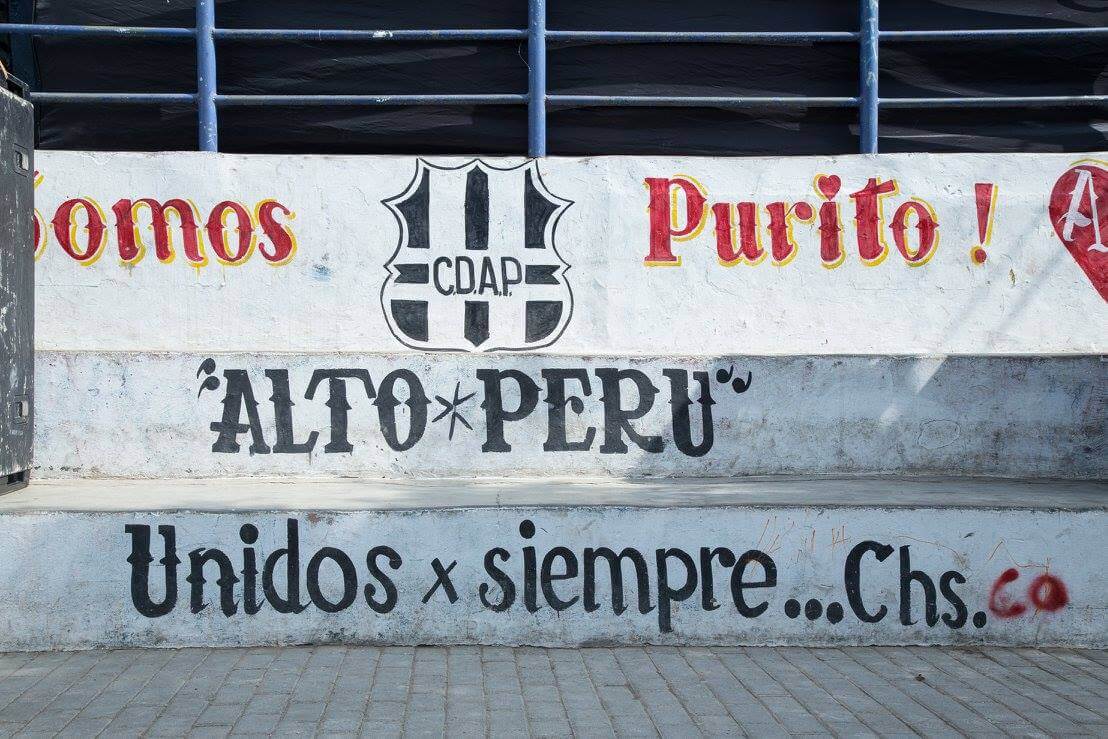 Somos C.D.A.P. Purito ! A
"ALTO*PERU"
Unidos x siempre...Chs. CO